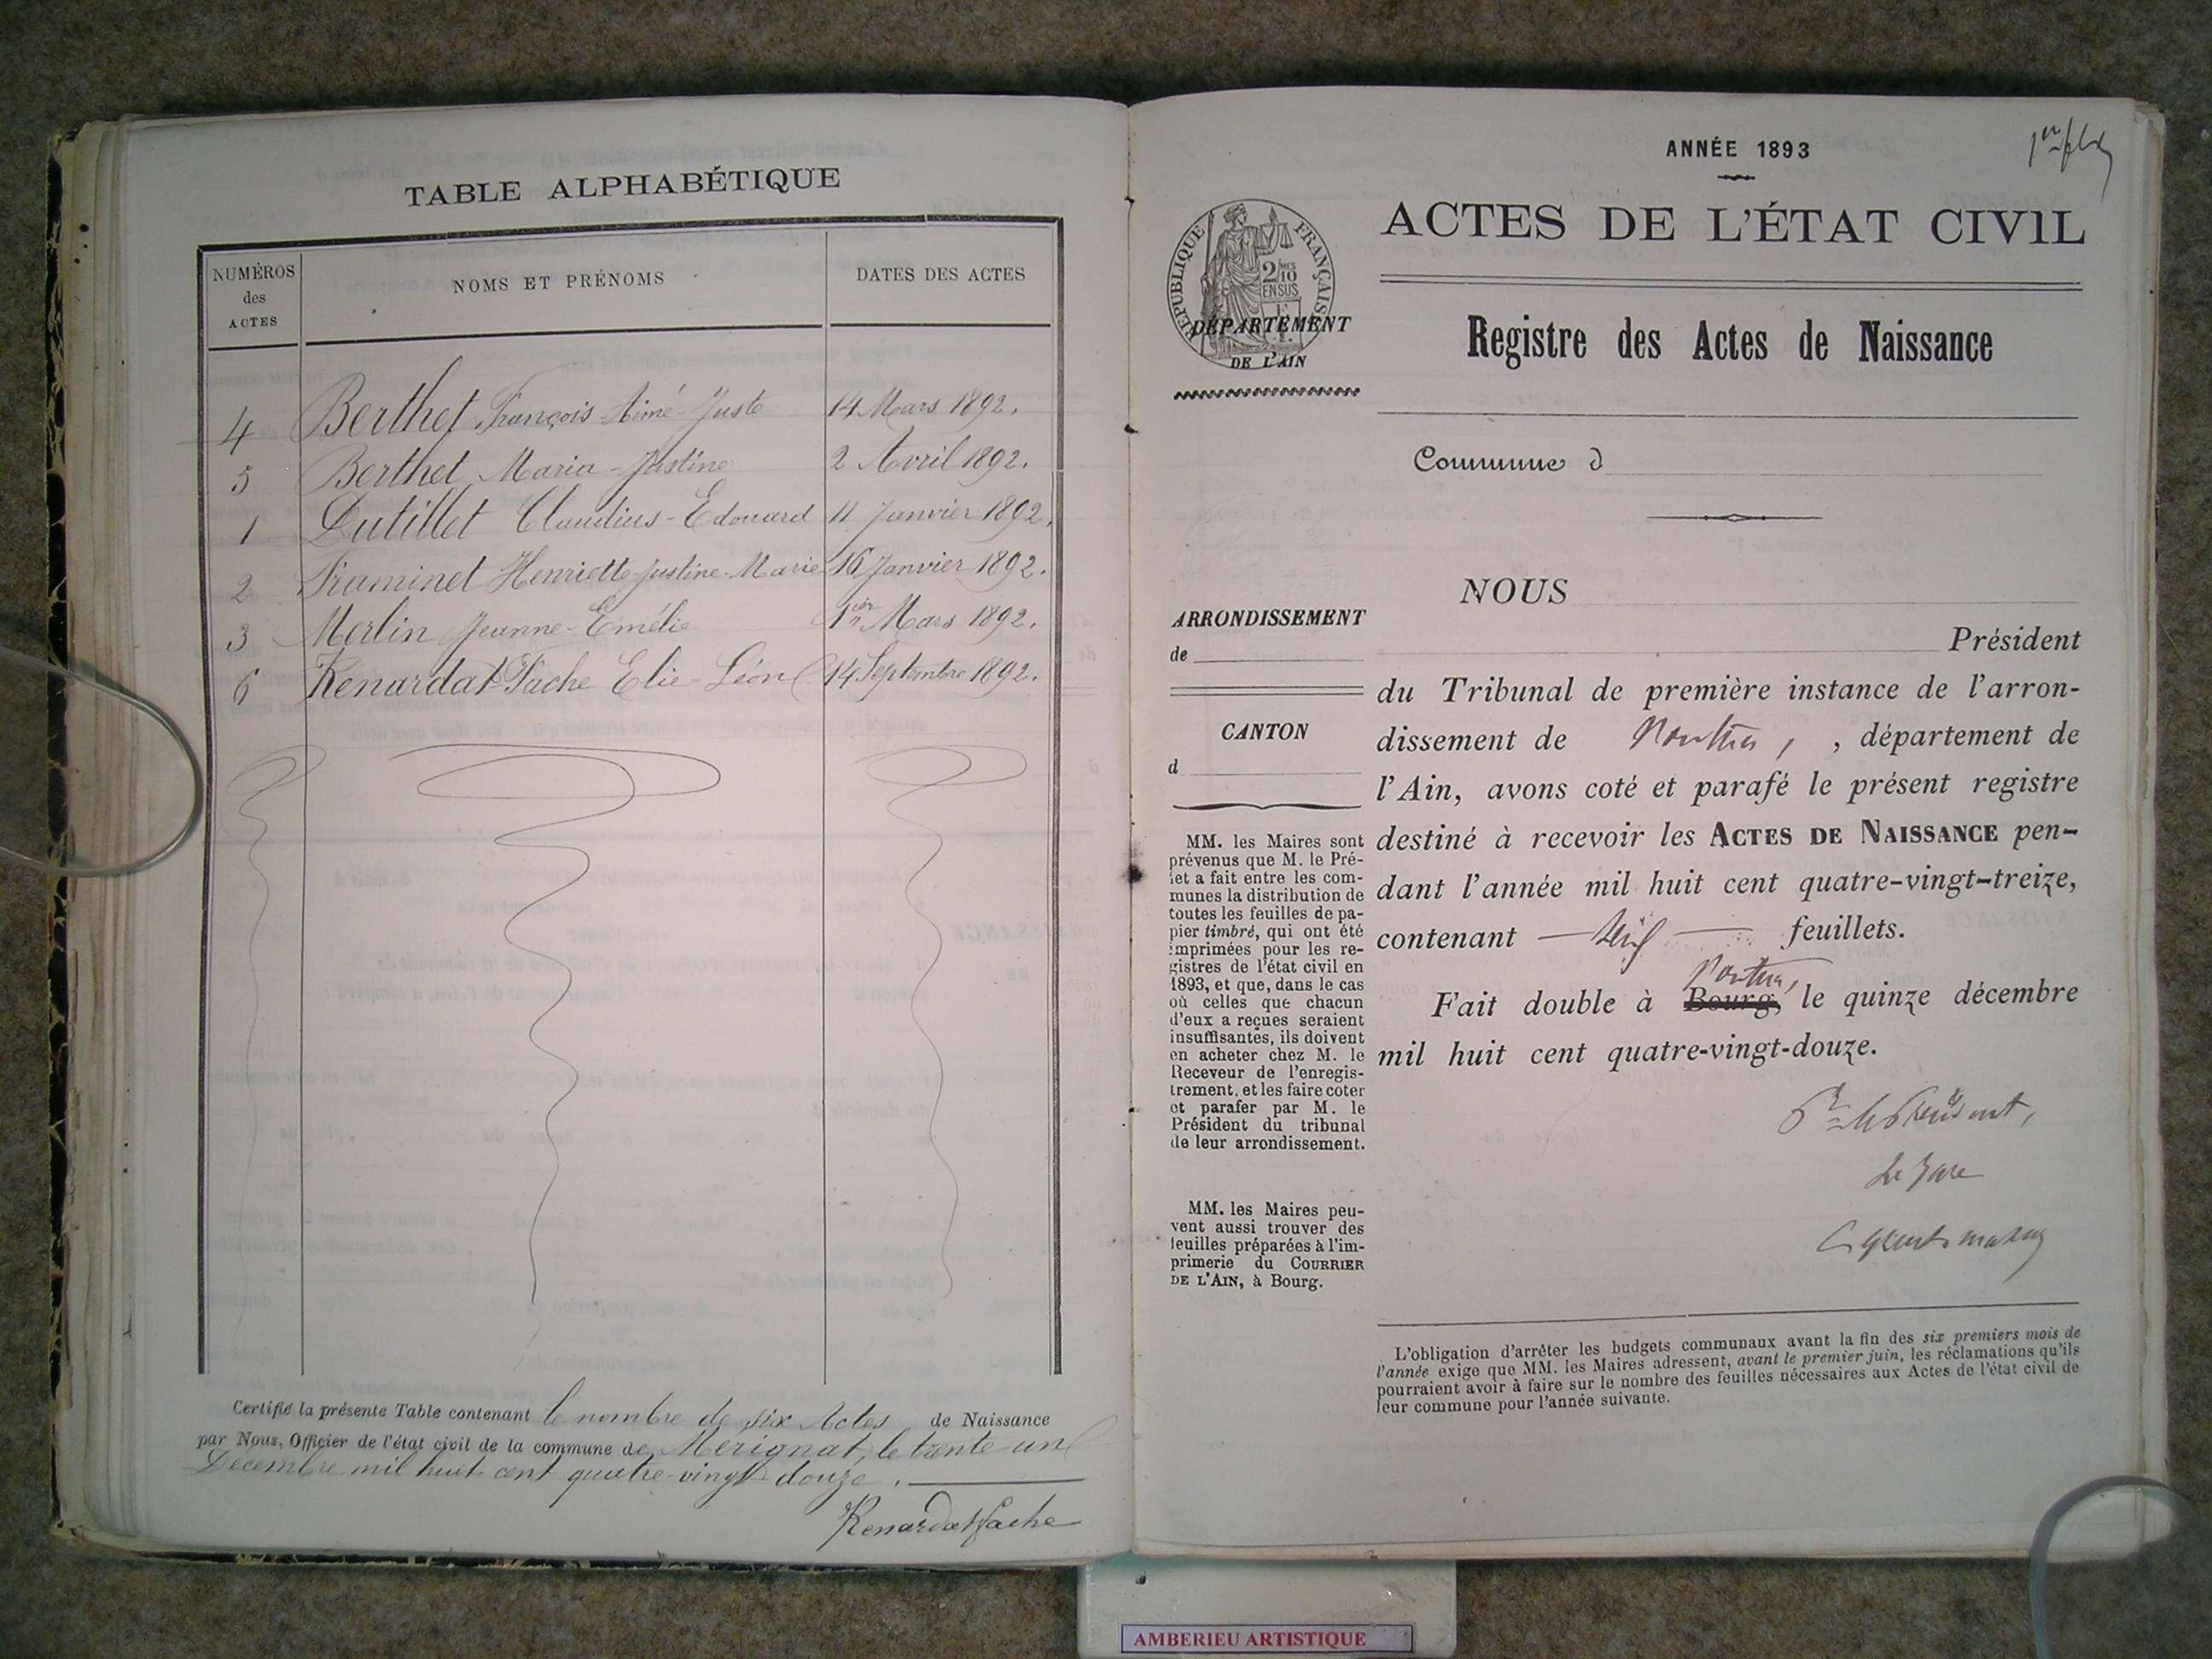 TABLE ALPHABÉTIQUE
NUMÉROS des ACTES
NOMS ET PRÉNOMS
DATES DES ACTES
4 Berthet François-Aimé-Juste 14 Mars 1892.
5 Berthet Maria-Justine 2 Avril 1892.
1 Dutillet Claudius-Edouard 11 Janvier 1892.
2 Framinet Henriette-Justine-Marie 16 Janvier 1892.
3 Merlin Jeanne-Emélie 1er Mars 1892.
6 Renardat-Fache Elie-Léon 14 Septembre 1892.
Certifié la présente Table contenant le nombre de six Actes de Naissance
par Nous, Officier de l'état civil de la commune de Mérignat, le trente-un
Décembre mil huit cent quatre-vingt douze.
Renardatfache
ANNÉE 1893
ACTES DE L'ÉTAT CIVIL
RÉPUBLIQUE FRANÇAISE
2/10 EN SUS
DÉPARTEMENT
DE L'AIN
Registre des Actes de Naissance
Commune d
NOUS
Président
du Tribunal de première instance de l'arron-
dissement de Nantua, , département de
l'Ain, avons coté et parafé le présent registre
destiné à recevoir les ACTES DE NAISSANCE pen-
dant l'année mil huit cent quatre-vingt-treize,
contenant feuillets.
Nantua,
Fait double à Bourg, le quinze décembre
mil huit cent quatre-vingt-douze.
Pr le Président,
Le Juge
ARRONDISSEMENT
de
CANTON
d
MM. les Maires sont
prévenus que M. le Pré-
fet a fait entre les com-
munes la distribution de
toutes les feuilles de pa-
pier timbré, qui ont été
imprimées pour les re-
gistres de l'état civil en
1893, et que, dans le cas
où celles que chacun
d'eux a reçues seraient
insuffisantes, ils doivent
en acheter chez M. le
Receveur de l'enregis-
trement, et les faire coter
et parafer par M. le
Président du tribunal
de leur arrondissement.
MM. les Maires peu-
vent aussi trouver des
feuilles préparées à l'im-
primerie du COURRIER
DE L'AIN, à Bourg.
L'obligation d'arrêter les budgets communaux avant la fin des six premiers mois de
l'année exige que MM. les Maires adressent, avant le premier juin, les réclamations qu'ils
pourraient avoir à faire sur le nombre des feuilles nécessaires aux Actes de l'état civil de
leur commune pour l'année suivante.
AMBERIEU ARTISTIQUE